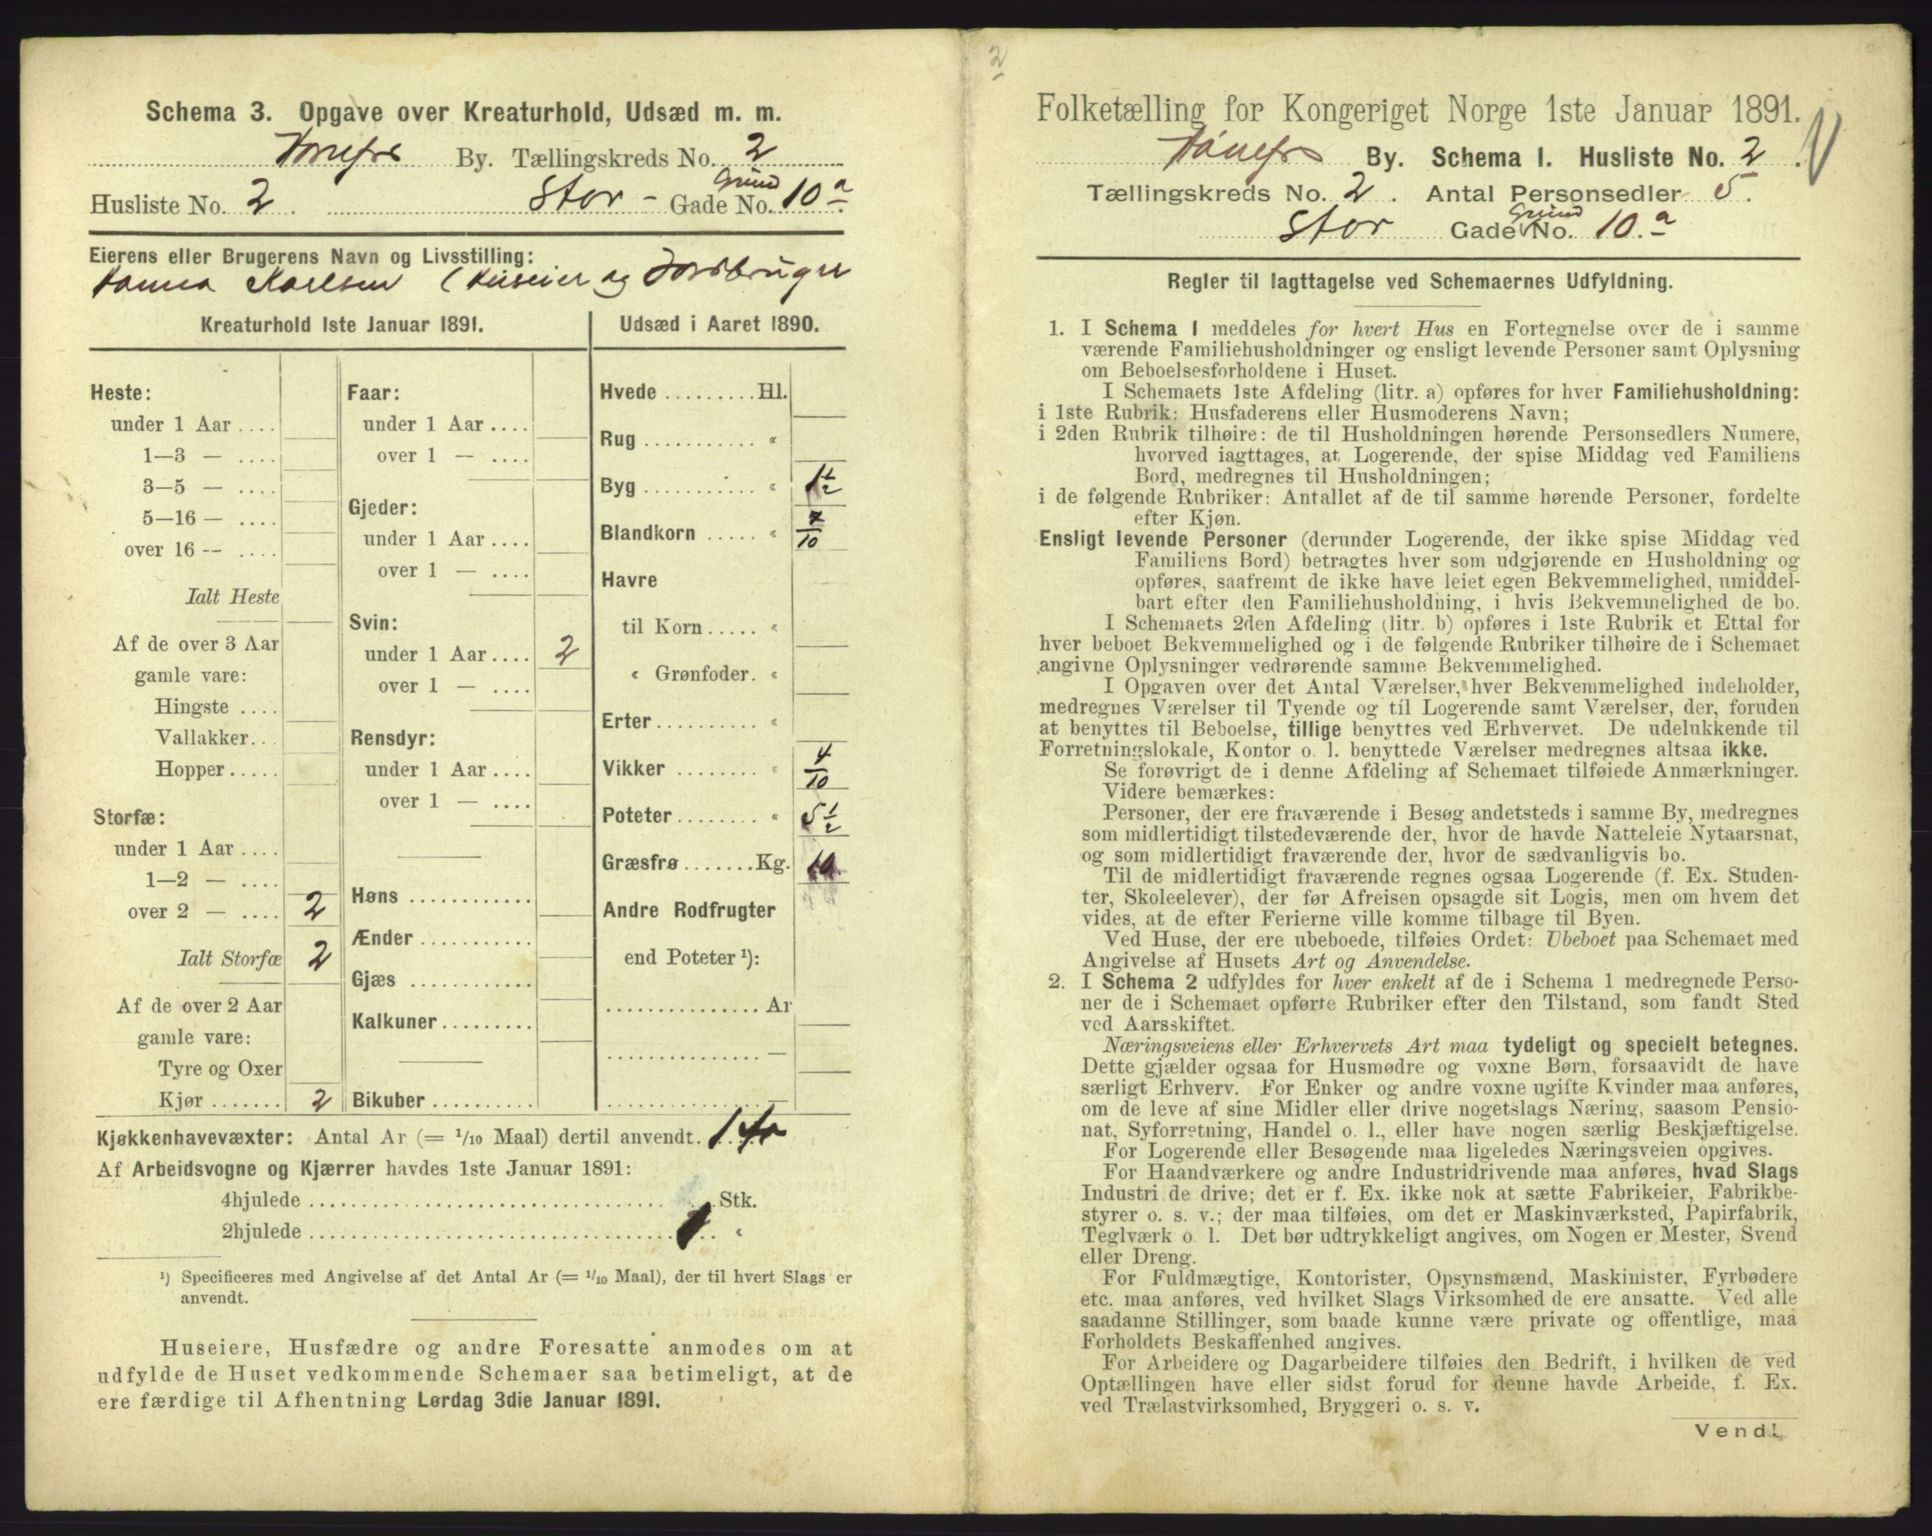 Schema 3. Opgave over Kreaturhold, Udsæd m. m.
Hønefos By. Tællingskreds No. 2
Husliste No. 2. Stor - Gade Grund No. 10 a.
Eierens eller Brugerens Navn og Livsstilling:
Hanna Karlsen (Huseier og Jordbruger
Kreaturhold 1ste Januar 1891.
Heste:
under 1 Aar ....
1—3 — ....
3—5 — ....
5—16 — ....
over 16 -- ....
Ialt Heste
Af de over 3 Aar
gamle vare:
Hingste ....
Vallakker...
Hopper.....
Storfæ:
under 1 Aar ....
1—2 — ....
over 2 — .... 2
Ialt Storfæ 2
Af de over 2 Aar
gamle vare:
Tyre og Oxer
Kjør ....... 2
Faar:
under 1 Aar ....
over 1 — ....
Gjeder:
under 1 Aar ....
over 1 — ....
Svin:
under 1 Aar.... 2
over 1 — ....
Rensdyr:
under 1 Aar....
over 1 — ....
Høns ............
Ænder ...........
Gjæs ............
Kalkuner.........
Bikuber ..........
Udsæd i Aaret 1890.
Hvede .........Hl.
Rug ........... «
Byg ........... « 1 1/2
Blandkorn ..... « 7/10
Havre
til Korn ..... «
« Grønfoder. «
Erter .......... «
Vikker ........ « 4/10
Poteter........ « 5 1/2
Græsfrø .......Kg. 10
Andre Rodfrugter
end Poteter ¹):
............... Ar
............... —
............... —
Kjøkkenhavevæxter: Antal Ar (= 1/10 Maal) dertil anvendt. 1 Ar
Af Arbeidsvogne og Kjærrer havdes 1ste Januar 1891:
4hjulede ...................................... Stk.
2hjulede ...................................... 1 «
¹) Specificeres med Angivelse af det Antal Ar (= 1/10 Maal), der til hvert Slags er
anvendt.
Huseiere, Husfædre og andre Foresatte anmodes om at
udfylde de Huset vedkommende Schemaer saa betimeligt, at de
ere færdige til Afhentning Lørdag 3die Januar 1891.
2
Folketælling for Kongeriget Norge 1ste Januar 1891.
Hønefos By. Schema I. Husliste No. 2.
Tællingskreds No. 2. Antal Personsedler 5.
Stor Gade Grund No. 10. a
Regler til Iagttagelse ved Schemaernes Udfyldning.
1. I Schema I meddeles for hvert Hus en Fortegnelse over de i samme
værende Familiehusholdninger og ensligt levende Personer samt Oplysning
om Beboelsesforholdene i Huset.
I Schemaets 1ste Afdeling (litr. a) opføres for hver Familiehusholdning:
i 1ste Rubrik: Husfaderens eller Husmoderens Navn;
i 2den Rubrik tilhøire: de til Husholdningen hørende Personsedlers Numere,
hvorved iagttages, at Logerende, der spise Middag ved Familiens
Bord, medregnes til Husholdningen;
i de følgende Rubriker: Antallet af de til samme hørende Personer, fordelte
efter Kjøn.
Ensligt levende Personer (derunder Logerende, der ikke spise Middag ved
Familiens Bord) betragtes hver som udgjørende en Husholdning og
opføres, saafremt de ikke have leiet egen Bekvemmelighed, umiddel-
bart efter den Familiehusholdning, i hvis Bekvemmelighed de bo.
I Schemaets 2den Afdeling (litr. b) opføres i 1ste Rubrik et Ettal for
hver beboet Bekvemmelighed og i de følgende Rubriker tilhøire de i Schemaet
angivne Oplysninger vedrørende samme Bekvemmelighed.
I Opgaven over det Antal Værelser, hver Bekvemmelighed indeholder,
medregnes Værelser til Tyende og til Logerende samt Værelser, der, foruden
at benyttes til Beboelse, tillige benyttes ved Erhvervet. De udelukkende til
Forretningslokale, Kontor o. l. benyttede Værelser medregnes altsaa ikke.
Se forøvrigt de i denne Afdeling af Schemaet tilføiede Anmærkninger.
Videre bemærkes:
Personer, der ere fraværende i Besøg andetsteds i samme By, medregnes
som midlertidigt tilstedeværende der, hvor de havde Natteleie Nytaarsnat,
og som midlertidigt fraværende der, hvor de sædvanligvis bo.
Til de midlertidigt fraværende regnes ogsaa Logerende (f. Ex. Studen-
ter, Skoleelever), der før Afreisen opsagde sit Logis, men om hvem det
vides, at de efter Ferierne ville komme tilbage til Byen.
Ved Huse, der ere ubeboede, tilføies Ordet: Ubeboet paa Schemaet med
Angivelse af Husets Art og Anvendelse.
2. I Schema 2 udfyldes for hver enkelt af de i Schema 1 medregnede Perso-
ner de i Schemaet opførte Rubriker efter den Tilstand, som fandt Sted
ved Aarsskiftet.
Næringsveiens eller Erhvervets Art maa tydeligt og specielt betegnes.
Dette gjælder ogsaa for Husmødre og voxne Børn, forsaavidt de have
særligt Erhverv. For Enker og andre voxne ugifte Kvinder maa anføres,
om de leve af sine Midler eller drive nogetslags Næring, saasom Pensio-
nat, Syforretning, Handel o. l., eller have nogen særlig Beskjæftigelse.
For Logerende eller Besøgende maa ligeledes Næringsveien opgives.
For Haandværkere og andre Industridrivende maa anføres, hvad Slags
Industri de drive; det er f. Ex. ikke nok at sætte Fabrikeier, Fabrikbe-
styrer o. s. v.; der maa tilføies, om det er Maskinværksted, Papirfabrik,
Teglværk o. l. Det bør udtrykkeligt angives, om Nogen er Mester, Svend
eller Dreng.
For Fuldmægtige, Kontorister, Opsynsmænd, Maskinister, Fyrbødere
etc. maa anføres, ved hvilket Slags Virksomhed de ere ansatte. Ved alle
saadanne Stillinger, som baade kunne være private og offentlige, maa
Forholdets Beskaffenhed angives.
For Arbeidere og Dagarbeidere tilføies den Bedrift, i hvilken de ved
Optællingen have eller sidst forud for denne havde Arbeide, f. Ex.
ved Trælastvirksomhed, Bryggeri o. s. v.
Vend!